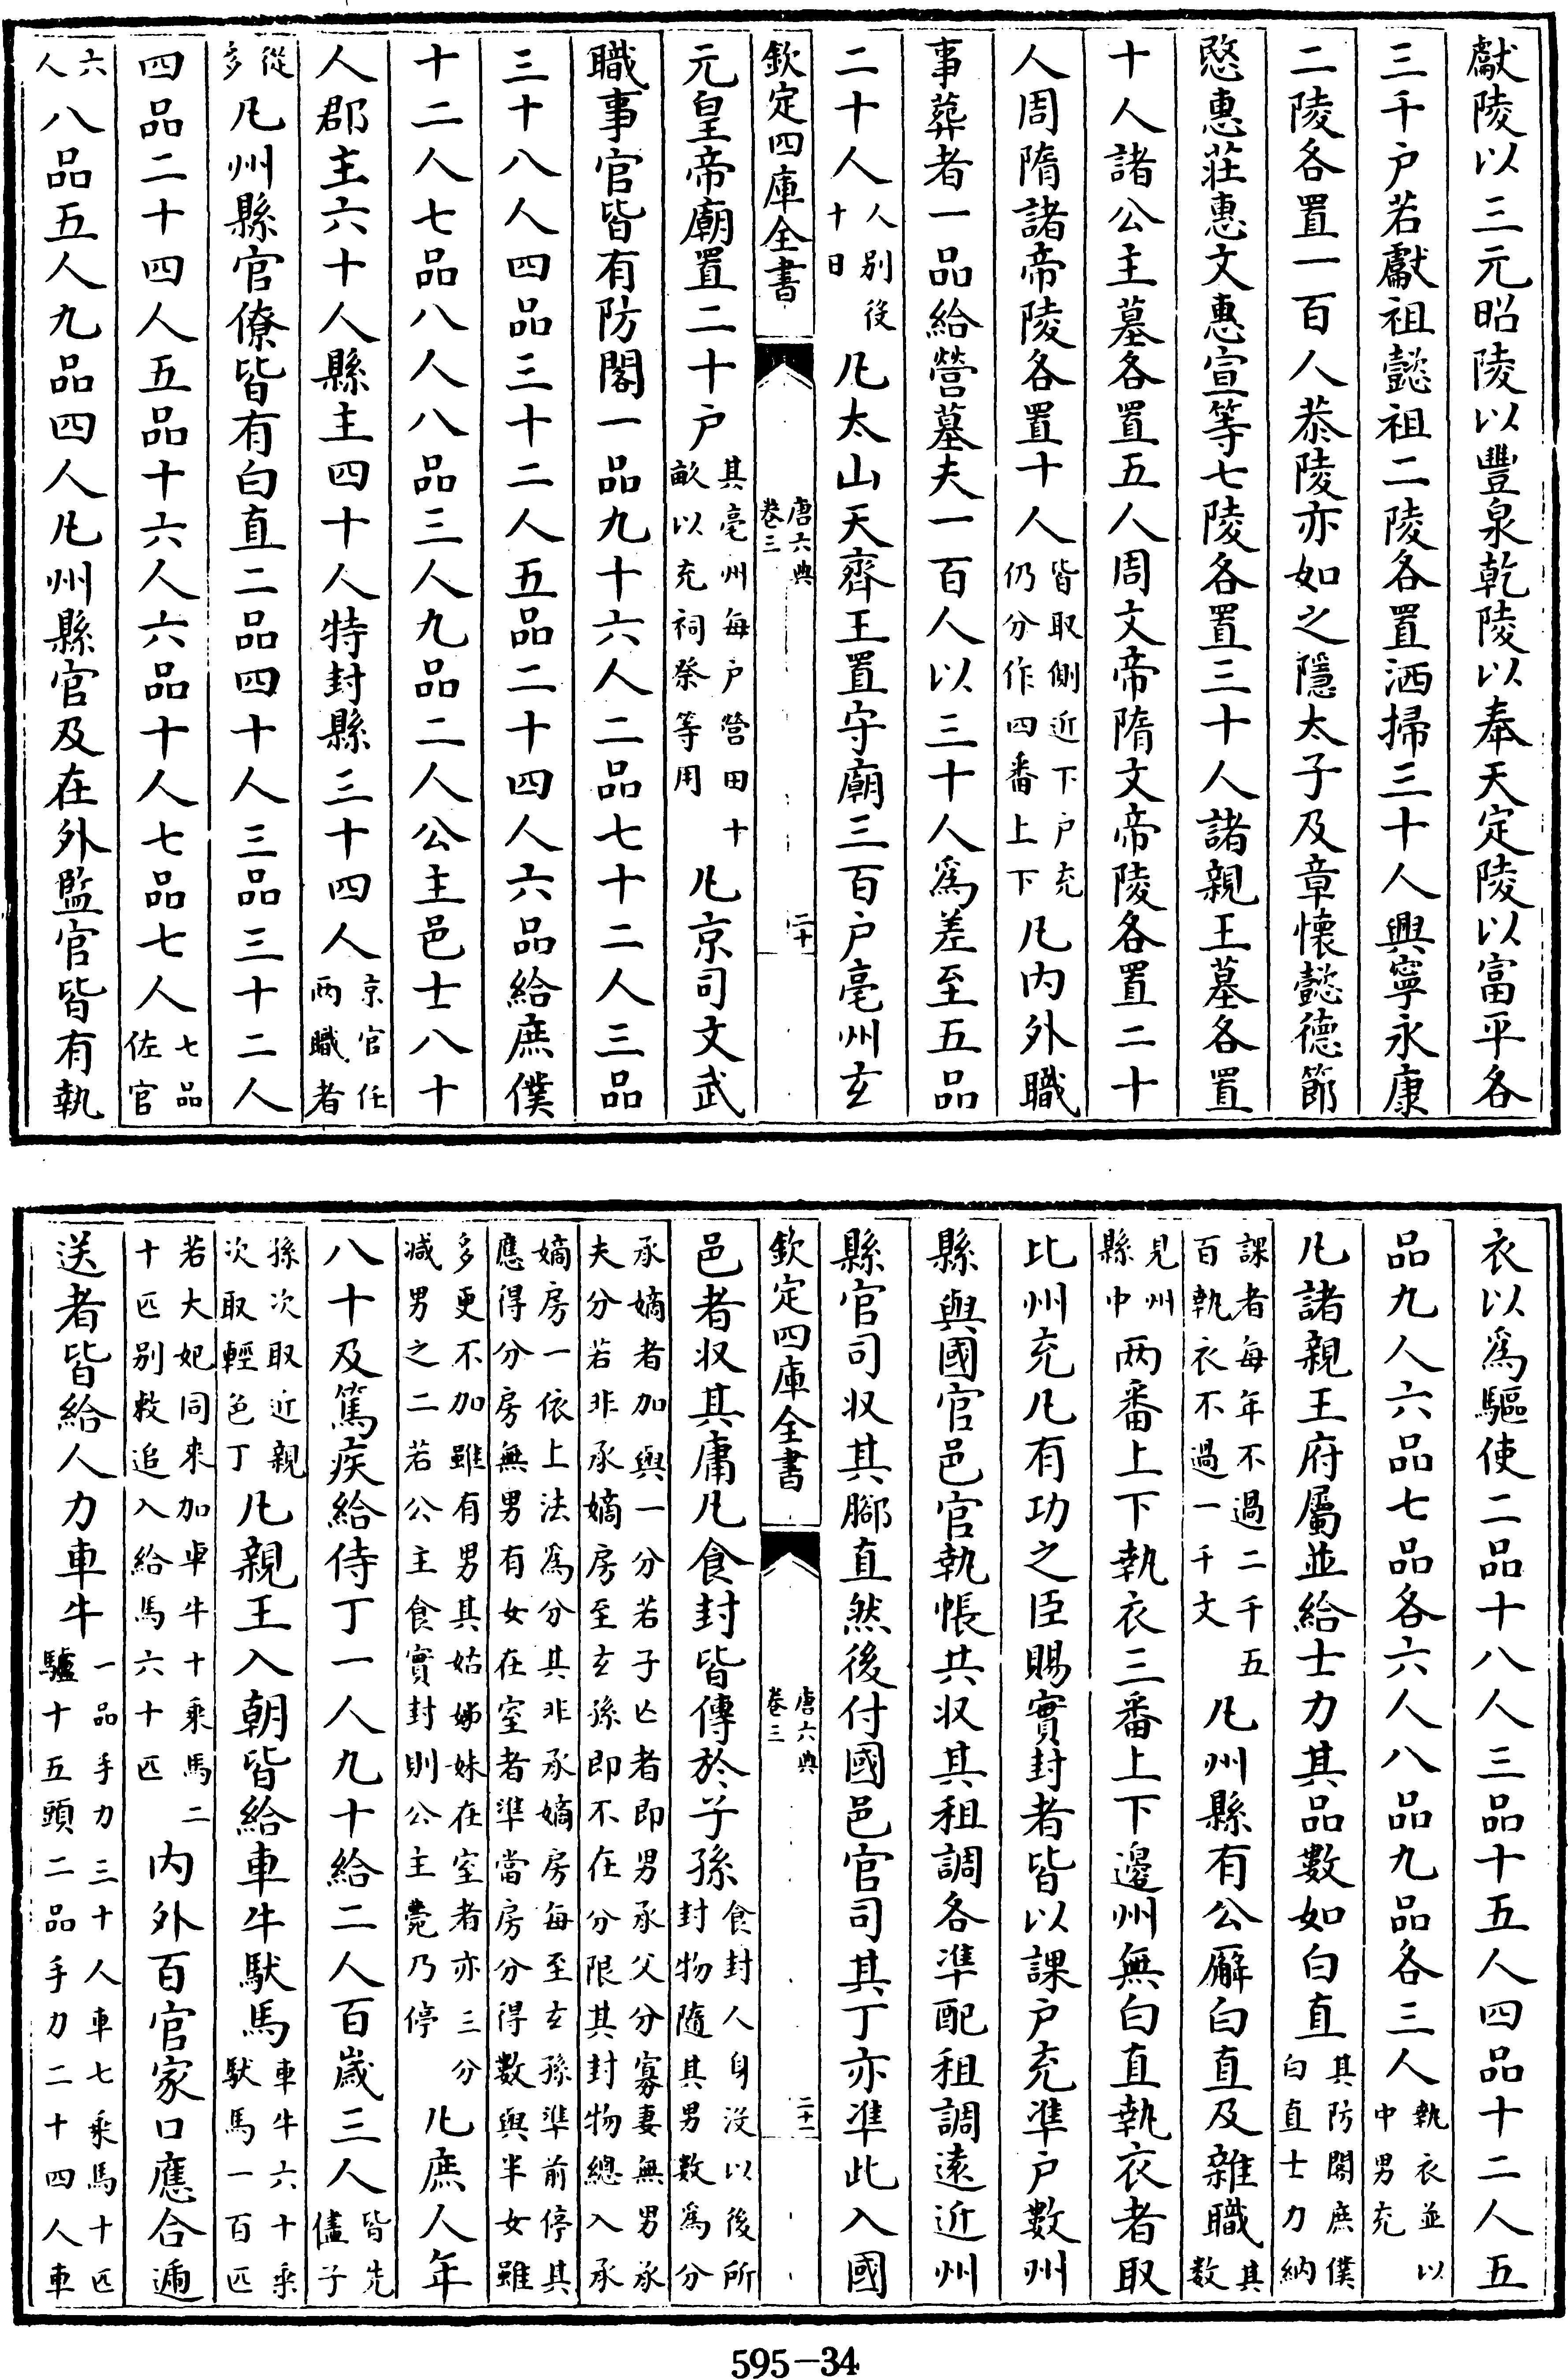 獻陵以三元昭陵以豐泉乾陵以奉天定陵以富平各
三千户若獻祖懿祖二陵各置洒掃三十人興寧永康
二陵各置一百人恭陵亦如之隱太子及章懷懿德節
愍惠莊惠文惠宣等七陵各置三十人諸親王墓各置
十人諸公主墓各置五人周文帝隋文帝陵各置二十
人周隋諸帝陵各置十人皆取側近下户充仍分作四番上下凡内外職
事葬者一品給營墓夫一百人以三十人爲差至五品
二十人人别役十日凡太山天齊王置守廟三百户亳州玄
欽定四庫全書 唐六典 卷三 二十
元皇帝廟置二十户其亳州每户營田十畝以充祠祭等用凡京司文武
職事官皆有防閤一品九十六人二品七十二人三品
三十八人四品三十二人五品二十四人六品給庶僕
十二人七品八人八品三人九品二人公主邑士八十
人郡主六十人縣主四十人特封縣三十四人京官任兩職者
從多凡州縣官僚皆有白直二品四十人三品三十二人
四品二十四人五品十六人六品十人七品七人七品佐官
六人八品五人九品四人凡州縣官及在外監官皆有執
衣以爲驅使二品十八人三品十五人四品十二人五
品九人六品七品各六人八品九品各三人執衣並以中男充
凡諸親王府屬並給士力其品數如白直其防閤庶僕白直士力納
課者每年不過二千五百執衣不過一千文凡州縣有公廨白直及雜職其數
見州縣中两番上下執衣三番上下邊州無白直執衣者取
比州充凡有功之臣賜實封者皆以課户充凖户數州
縣與國官邑官執帳共収其租調各凖配租調遠近州
縣官司収其腳直然後付國邑官司其丁亦凖此入國
欽定四庫全書 唐六典 卷三 二十一
邑者収其庸凡食封皆傳於子孫食封人身沒以後所封物隨其男數爲分
承嫡者加與一分若子亾者即男承父分寡妻無男承夫分若非承嫡房至玄孫即不在分限其封物總入承
嫡房一依上法爲分其非承嫡房每至玄孫準前停其應得分房無男有女在室者準當房分得數與半女雖
多更不加雖有男其姑姊妹在室者亦三分减男之二若公主食實封則公主薨乃停凡庶人年
八十及篤疾給侍丁一人九十給二人百歲三人皆先儘子
孫次取近親次取輕色丁凡親王入朝皆給車牛馱馬車牛六十乘馱馬一百匹
若大妃同來加車牛十乘馬二十匹别敕追入給馬六十匹内外百官家口應合遞
送者皆給人力車牛一品手力三十人車七乘馬十匹驢十五頭二品手力二十四人車
595—34